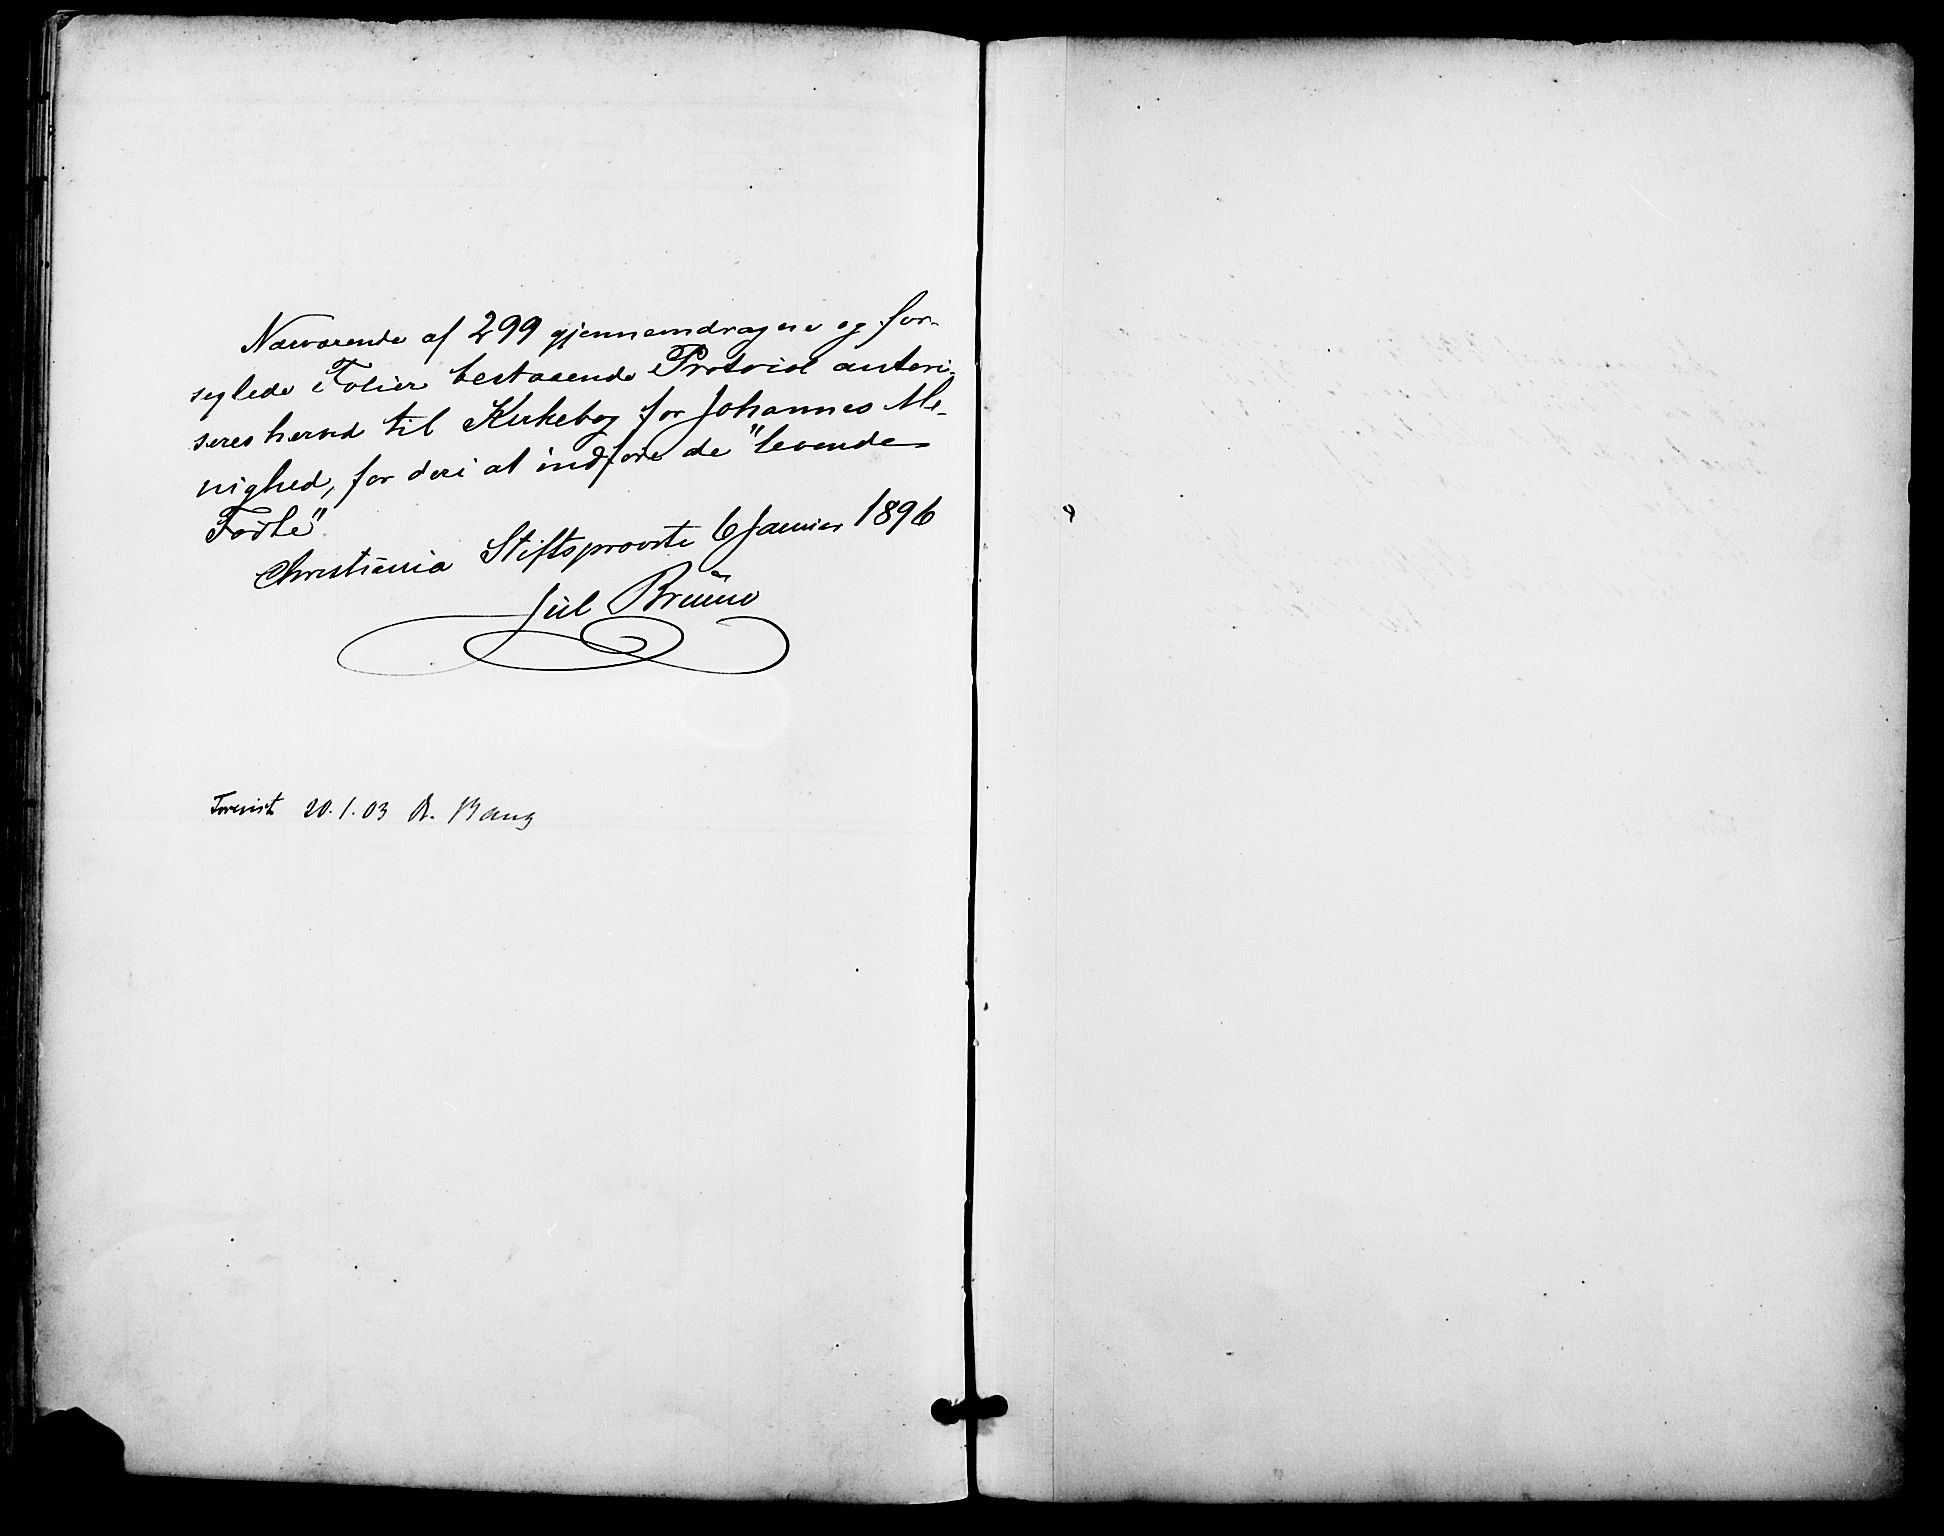 Nærværende af 299 gjennemdragne og for-
seglede Folier bestaaende Protocol autori-
seres herved til Kirkebog for Johannes Me-
nighed, for deri at indføre de "levende
Fødte"
Christiania Stiftsprovsti 6 Januar 1896
Jul Bruun
Forevist 20.1.03 A. Bang